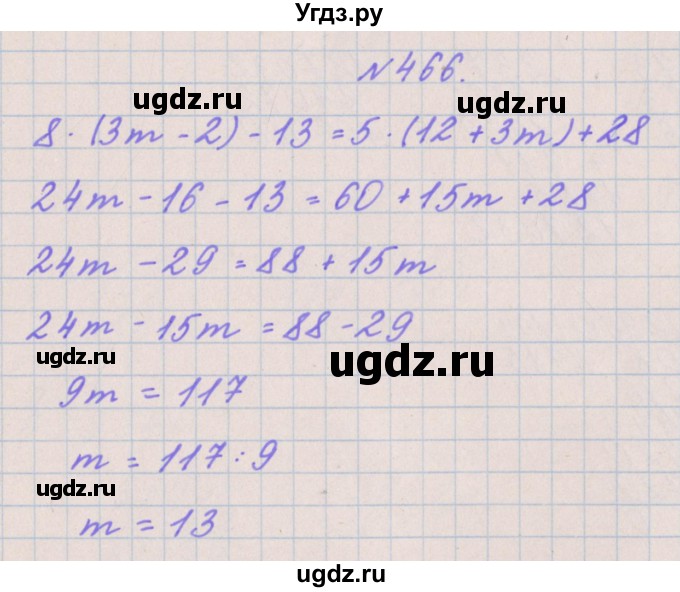 Угдз.ру
№466.
ugdz.ru ugdz.ru
8·(3m-2)-13=5·(12+3m)+28
24m-16-13=60+15m+28
24m-29=88+15m
24m-15m=88-29
ugdz.ru ugdz.ru
9m=117
m=117:9
ugdz.ru
m=13
ugdz.ru